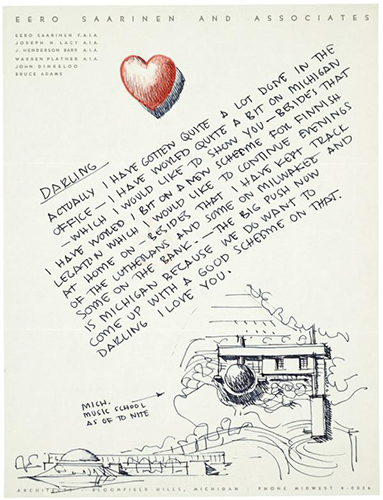 EERO SAARINEN AND ASSOCIATES
EERO SAARINEN F.A.I.A.
JOSEPH N. LACY A.I.A.
J. HENDERSON BARR A.I.A.
WARREN PLATNER A.I.A.
JOHN DINKELOO
BRUCE ADAMS
DARLING —
ACTUALLY I HAVE GOTTEN QUITE A LOT DONE IN THE
OFFICE — I HAVE WORKED QUITE A BIT ON MICHIGAN
— WHICH I WOULD LIKE TO SHOW YOU — BESIDES THAT
I HAVE WORKED 1 BIT ON A NEW SCHEME FOR FINNISH
LEGATION WHICH I WOULD LIKE TO CONTINUE EVENINGS
AT HOME ON — BESIDES THAT I HAVE KEPT TRACK
OF THE LUTHERANS AND SOME ON MILWAKEE AND
SOME ON THE BANK — THE BIG PUSH NOW
IS MICHIGAN BECAUSE WE DO WANT TO
COME UP WITH A GOOD SCHEME ON THAT.
DARLING I LOVE YOU.
MICH.
MUSIC SCHOOL
AS OF TO NITE
ARCHITECTS BLOOMFIELD HILLS, MICHIGAN PHONE MIDWEST 6-0026